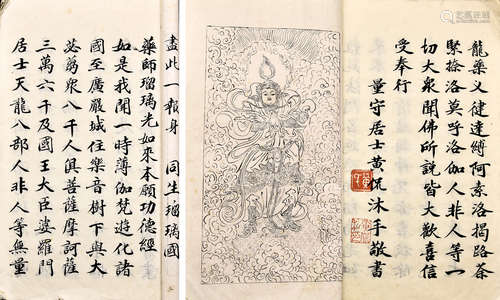 龍藥叉健達縛阿素洛揭路荼
緊捺洛莫呼洛伽人非人等一
切大衆聞佛所說皆大歡喜信
受奉行
量守居士黃侃沐手敬書
盡此一報身 同生瑠璃國
藥師瑠璃光如來本願功德經
如是我聞一時薄伽梵遊化諸
國至廣嚴城住樂音樹下與大
苾芻衆八千人俱菩薩摩訶薩
三萬六千及國王大臣婆羅門
居士天龍八部人非人等無量